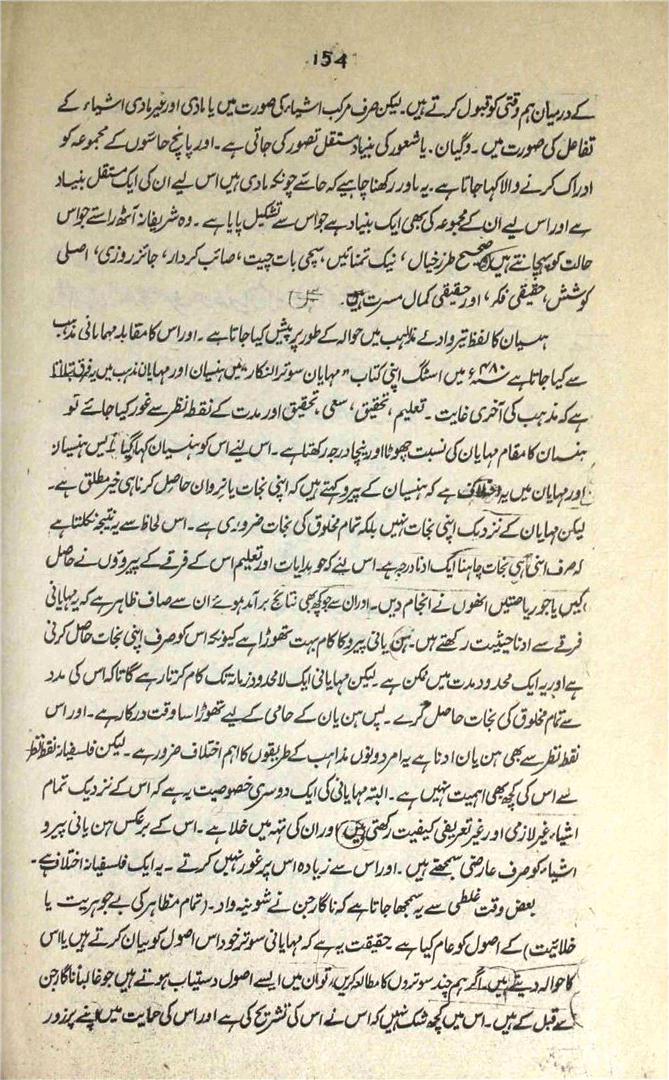 154
کے درمیان ہم وقتی کو قبول کرتے ہیں۔ لیکن صرف مرکب اشیاء کی صورت میں یا مادی اور غیر مادی اشیاء کے
تفاعل کی صورت میں۔ وگیان۔ یا شعور کی بنیاد مستقل تصور کی جاتی ہے۔ اور پانچ حاسّوں کے مجموعہ کو
ادراک کرنے والا کہا جاتا ہے۔ یہ یاد رکھنا چاہیے کہ حاسّے چونکہ مادی ہیں اس لیے ان کی ایک مستقل بنیاد
ہے اور اس لیے ان کے مجموعہ کی بھی ایک بنیاد ہے جو اس سے تشکیل پایا ہے۔ وہ شریفانہ آٹھ راستے جو اس
حالت کو پہچانتے ہیں صحیح طرز خیال، نیک تمنائیں، سچی بات چیت، صائب کردار، جائز روزی، اصلی
کوشش، حقیقی فکر، اور حقیقی کمال مسرت ہیں۔
ہنسیان کا لفظ تیروادئے مذاہب میں حوالہ کے طور پر پیش کیا جاتا ہے۔ اور اس کا مقابلہ مہایانی مذہب
سے کیا جاتا ہے سنہ ۴۸۰ء میں اسنگ اپنی کتاب "مہایان سوترالنکار" میں ہنسیان اور مہایان مذہب میں یہ فرق بتلاتا
ہے کہ مذہب کی آخری غایت۔ تعلیم، تحقیق، سعی، تحقیق اور مدت کے نقطۂ نظر سے غور کیا جائے تو
ہنسیان کا مقام مہایان کی نسبت چھوٹا اور نیچا درجہ رکھتا ہے۔ اس لئے اس کو ہنسیان کہا گیا ہے پس ہنسیان
اور مہایان میں یہ اختلاف ہے کہ ہنسیان کے پیرو کہتے ہیں کہ اپنی نجات یا نروان حاصل کرنا ہی خیر مطلق ہے۔
لیکن مہایان کے نزدیک اپنی نجات نہیں بلکہ تمام مخلوق کی نجات ضروری ہے۔ اس لحاظ سے یہ نتیجہ نکلتا ہے
کہ صرف اپنی ہی نجات چاہنا ایک ادنا درجہ ہے۔ اس لئے کہ جو ہدایات اور تعلیم اس کے فرقے کے پیروؤں نے حاصل
کیں یا جو ریاضتیں انھوں نے انجام دیں۔ اور ان سے جو کچھ بھی نتائج برآمد ہوئے ان سے صاف ظاہر ہے کہ یہ مہایانی
فرقے سے ادنا حیثیت رکھتے ہیں۔ ہن یانی پیرو کا کام بہت تھوڑا ہے کیونکہ اس کو صرف اپنی نجات حاصل کرنی
ہے اور یہ ایک محدود مدت میں ممکن ہے۔ لیکن مہایانی ایک لامحدود زمانہ تک کام کرتا رہے گا تاکہ اس کی مدد
سے تمام مخلوق کی نجات حاصل کرے۔ پس ہن یان کے حامی کے لیے تھوڑا سا وقت درکار ہے۔ اور اس
نقطۂ نظر سے بھی ہن یان ادنا ہے یہ امر دونوں مذاہب کے طریقوں کا اہم اختلاف ضرور ہے۔ لیکن فلسفیانہ نقطۂ نظر
سے اس کی کچھ بھی اہمیت نہیں ہے۔ البتہ مہایانی کی ایک دوسری خصوصیت یہ ہے کہ اس کے نزدیک تمام
اشیاء غیر لازمی اور غیر تعریفی کیفیت رکھتی ہیں اور ان کی تہہ میں خلا ہے۔ اس کے برعکس ہن یانی پیرو
اشیاء کو صرف عارضی سمجھتے ہیں۔ اور اس سے زیادہ اس پر غور نہیں کرتے۔ یہ ایک فلسفیانہ اختلاف ہے۔
بعض وقت غلطی سے یہ سمجھا جاتا ہے کہ ناگارجن نے شونیہ واد۔ (تمام مظاہر کی بے جوہریت یا
خلائیت) کے اصول کو عام کیا ہے۔ حقیقت یہ ہے کہ مہایانی سوتر خود اس اصول کو بیان کرتے ہیں یا اس
کا حوالہ دیتے ہیں۔ اگر ہم چند سوتروں کا مطالعہ کریں، تو ان میں ایسے اصول دستیاب ہوتے ہیں جو غالباً ناگارجن
سے قبل کے ہیں۔ اس میں کچھ شک نہیں کہ اس نے اس کی تشریح کی ہے اور اس کی حمایت میں اپنے پرزور